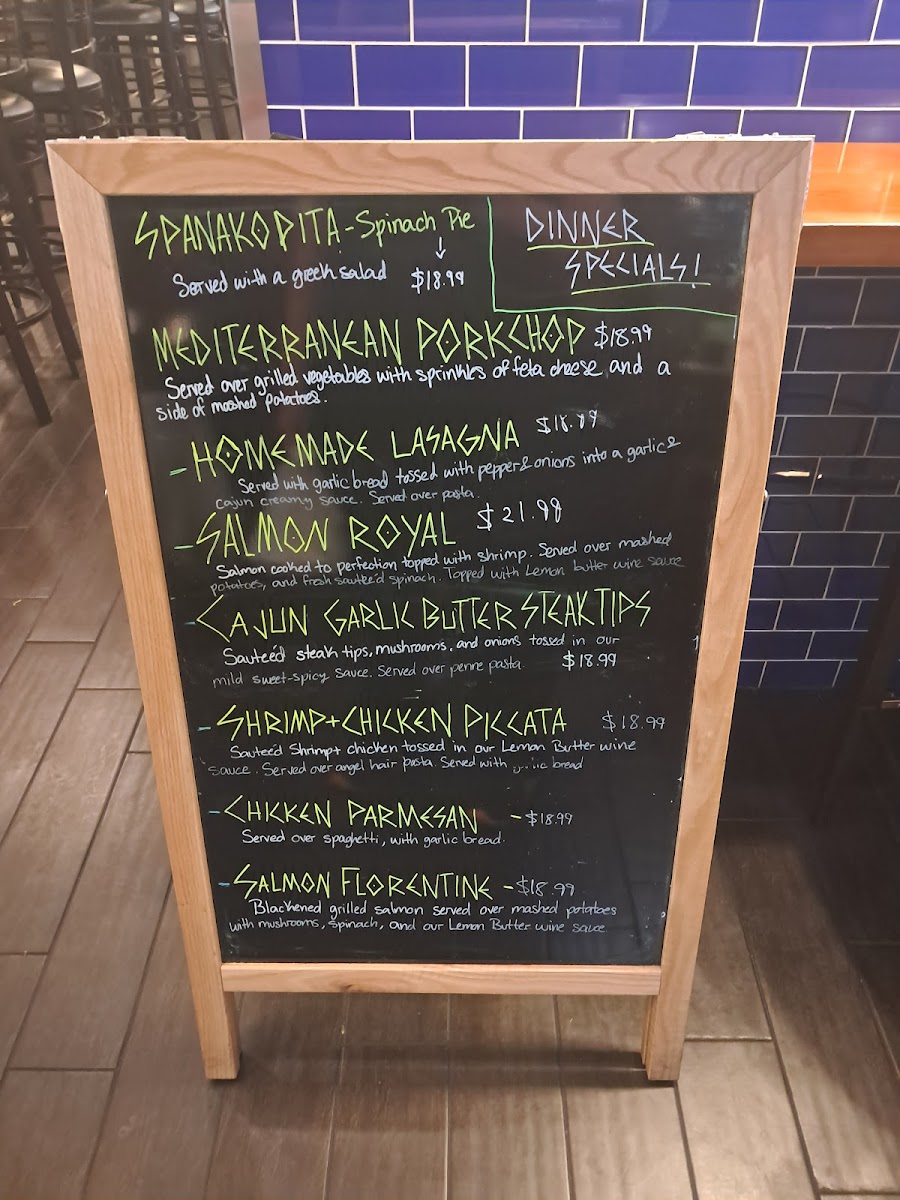 SPANAKOPITA - Spinach Pie
Served with a greek salad $18.99
DINNER
SPECIALS!
MEDITERRANEAN PORKCHOP $18.99
Served over grilled vegetables with sprinkles of feta cheese and a
side of mashed potatoes.
- HOMEMADE LASAGNA
Served with garlic bread tossed with pepper & onions into a garlic &
cajun creamy sauce. Served over pasta.
- SALMON ROYAL $21.99
Salmon cooked to perfection topped with shrimp. Served over mashed
potatoes, and fresh sauteéd spinach. Topped with Lemon butter wine sauce
- CAJUN GARLIC BUTTER STEAK TIPS
Sauteéd steak tips, mushrooms, and onions tossed in our
mild sweet-spicy sauce. Served over penne pasta. $18.99
- SHRIMP + CHICKEN PICCATA $18.99
Sauteéd Shrimp + chicken tossed in our Lemon Butter wine
sauce. Served over angel hair pasta. Served with bread
- CHICKEN PARMESAN - $18.99
Served over spaghetti, with garlic bread.
- SALMON FLORENTINE - $18.99
Blackened grilled salmon served over mashed potatoes
with mushrooms, spinach, and our Lemon Butter wine sauce